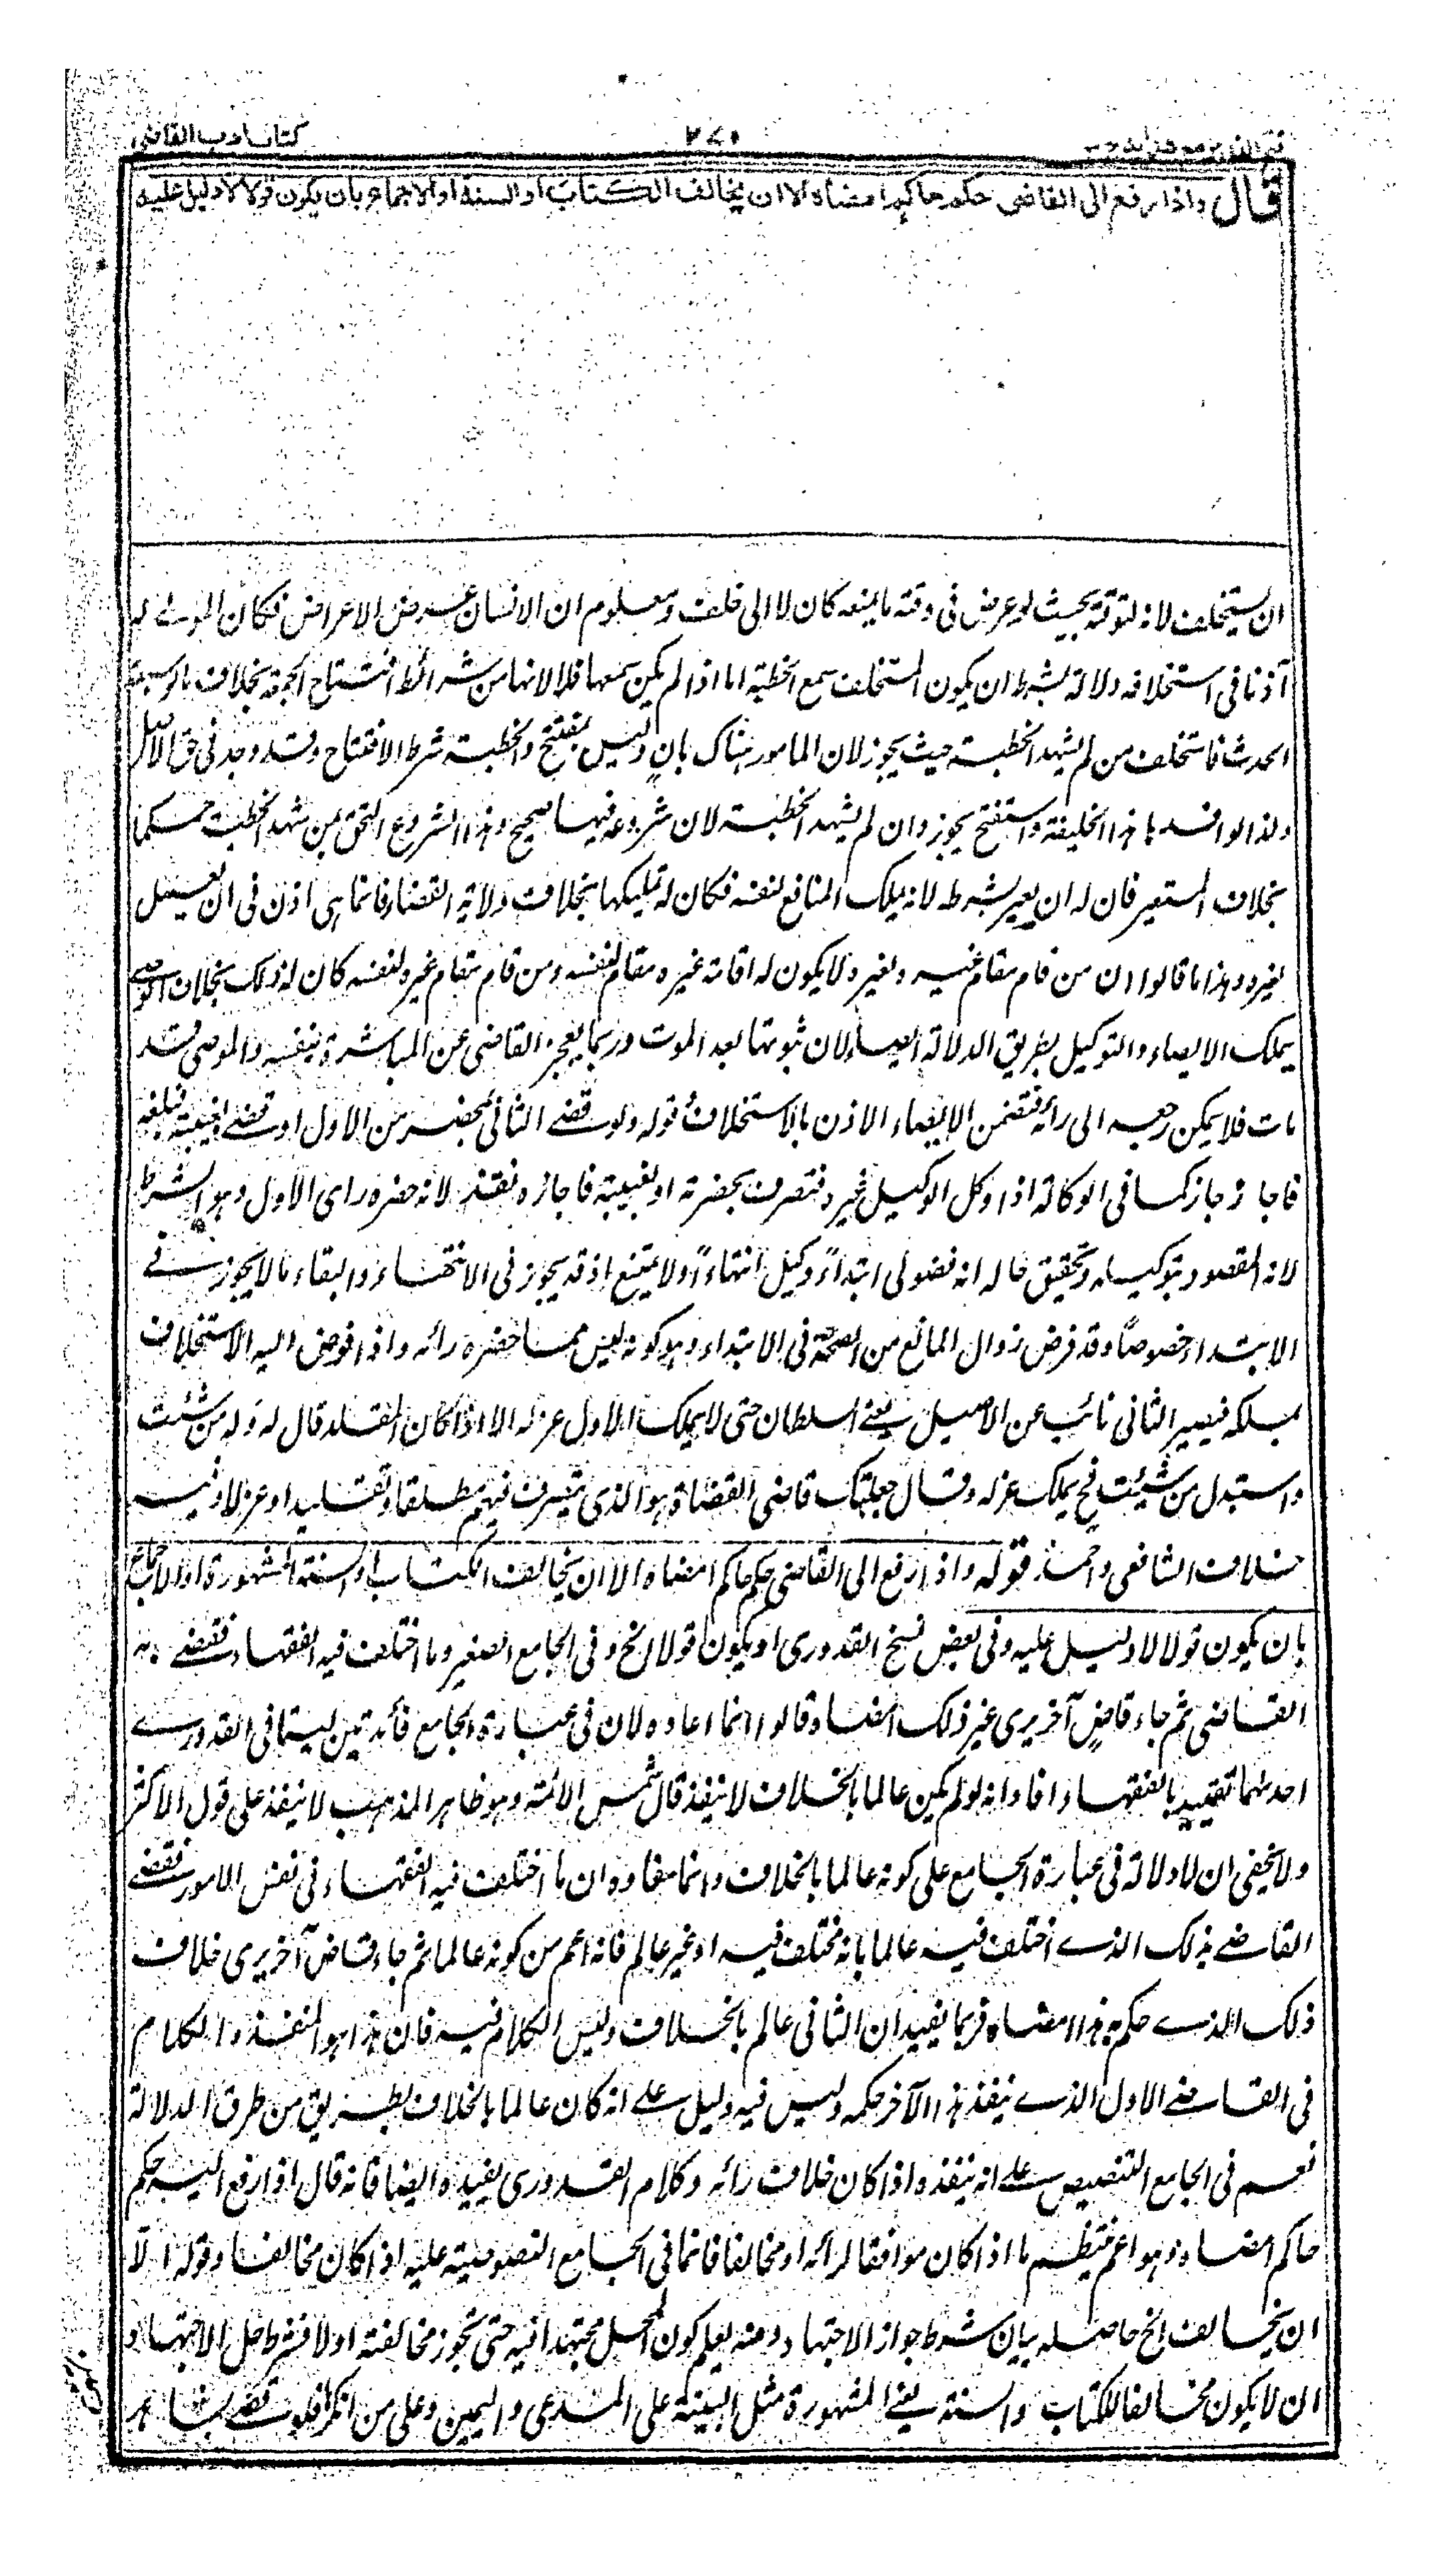 كتاب ادب القاضي
قال واذا رفع الى القاضي حكم حاكم امضاه الا ان يخالف الكتاب او السنة او الاجماع بان يكون قولا لا دليل عليه
ان يستخلف لانه لتوقته بحيث لو عرض فى وقته ما يمنعه كان لا الى خلف ومعلوم ان الانسان عرض الاعراض فكان المولى له
آذنا فى استخلافه دلالة بشرط ان يكون المستخلف سمع الخطبة اما اذا لم يكن سمعها فلا لانها من شرائط افتتاح الجمعة بخلاف ما لو سبقه
الحدث فاستخلف من لم يشهد الخطبة حيث يجوز لان المامور هناك بانٍ وليس بمفتتح والخطبة شرط الافتتاح وقد وجد فى حق الاصل
ولذا لو افسد هذا الخليفة واستفتح يجوز وان لم يشهد الخطبة لان شروعه فيها صحيح وبهذا الشروع التحق بمن شهد الخطبة حكما
بخلاف المستعير فان له ان يعير بشرطه لانه يملك المنافع لنفسه فكان له تمليكها بخلاف ولاية القضاء فانما هى اذن فى ان يعمل
لغيره وهذا ما قالوا ان من قام مقام غيره لغيره لا يكون له اقامة غيره مقام نفسه ومن قام مقام غيره لنفسه كان له ذلك بخلاف الوصى
يملك الايصاء والتوكيل بطريق الدلالة ايضا لان ثبوتها بعد الموت وربما يعجز القاضى عن المباشرة بنفسه والموصى قد
مات فلا يمكن رجوعه الى رائه فتضمن الايصاء الاذن بالاستخلاف قوله ولو قضى الثانى بمحضر من الاول او قضى بغيبته فبلغه
فاجازه جاز كما فى الوكالة اذا وكل الوكيل غيره فتصرف بحضرته او بغيبته فاجازه نفذ لانه حضره راى الاول وهو الشرط
لانه المقصود بتوكيله وتحقيق حاله انه فضولى ابتداءً وكيل انتهاءً ولا يمتنع اذ قد يجوز فى الانتهاء والبقاء ما لا يجوز فى
الابتداء خصوصًا وقد فرض زوال المانع من الصحة فى الابتداء وهو كونه ليس مما حضره رائه واذا فوض اليه الاستخلاف
يملكه فيصير الثانى نائب عن الاصيل يعنى السلطان حتى لا يملك الاول عزله الا اذا كان المقلد قال له وله من شئت
واستبدل من شئت فح يملك عزله وقال جعلتك قاضى القضاة هو الذى يتصرف فيهم مطلقا تقليدا وعزلا وفيه
خلاف الشافعى واحمد قوله واذا رفع الى القاضى حكم حاكم امضاه الا ان يخالف الكتاب او السنة المشهورة او الاجماع
بان يكون قولا لا دليل عليه وفى بعض نسخ القدورى او يكون قولا الخ وفى الجامع الصغير وما اختلف فيه الفقهاء فقضى به
القاضى ثم جاء قاضٍ آخر يرى غير ذلك امضاه قالوا انما اعاده لان فى عبارة الجامع فائدتين ليستا فى القدورى
احدهما تقييده بالفقهاء افاد انه لو لم يكن عالما بالخلاف لا ينفذ قال شمس الائمة وهو ظاهر المذهب لا ينفذ على قول الاكثر
ولا يخفى ان لا دلالة فى عبارة الجامع على كونه عالما بالخلاف وانما مفاده ان ما اختلف فيه الفقهاء فى نفس الامور فقضى
القاضى بذلك الذى اختلف فيه عالما بانه مختلف فيه او غير عالم فانه اعم من كونه عالما ثم جاء قاض آخر يرى خلاف
ذلك الذى حكم به هذا امضاه فربما يفيد ان الثانى عالم بالخلاف وليس الكلام فيه فان هذا هو المنفذ والكلام
فى القاضى الاول الذى ينفذ هذا الآخر حكمه وليس فيه دليل على انه كان عالما بالخلاف بطريق من طرق الدلالة
نعم فى الجامع التنصيص على انه ينفذه اذا كان خلاف رائه وكلام القدورى يفيده ايضا فانه قال اذا رفع اليه حكم
حاكم امضاه وهو اعم ينتظم ما اذا كان موافقا لرائه او مخالفا فانما فى الجامع التنصوصية عليه اذا كان مخالفا وقوله الا
ان يخالف الخ حاصله بيان شرط جواز الاجتهاد ومنه يعلم كون المحل مجتهدا فيه حتى تجوز مخالفته اولا فشرط حل الاجتهاد
ان لا يكون مخالفا للكتاب والسنة يعنى المشهورة مثل البينة على المدعى واليمين على من انكر فلو قضى بشاهد